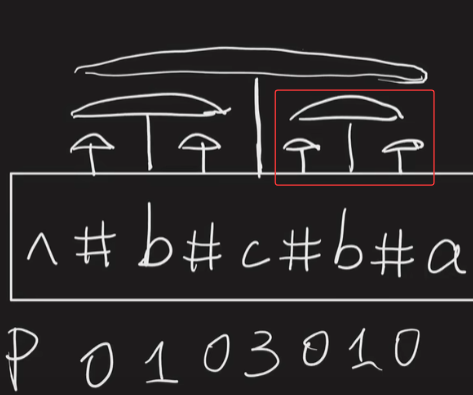 ^ # b # c # b # a
P 0 1 0 3 0 1 0